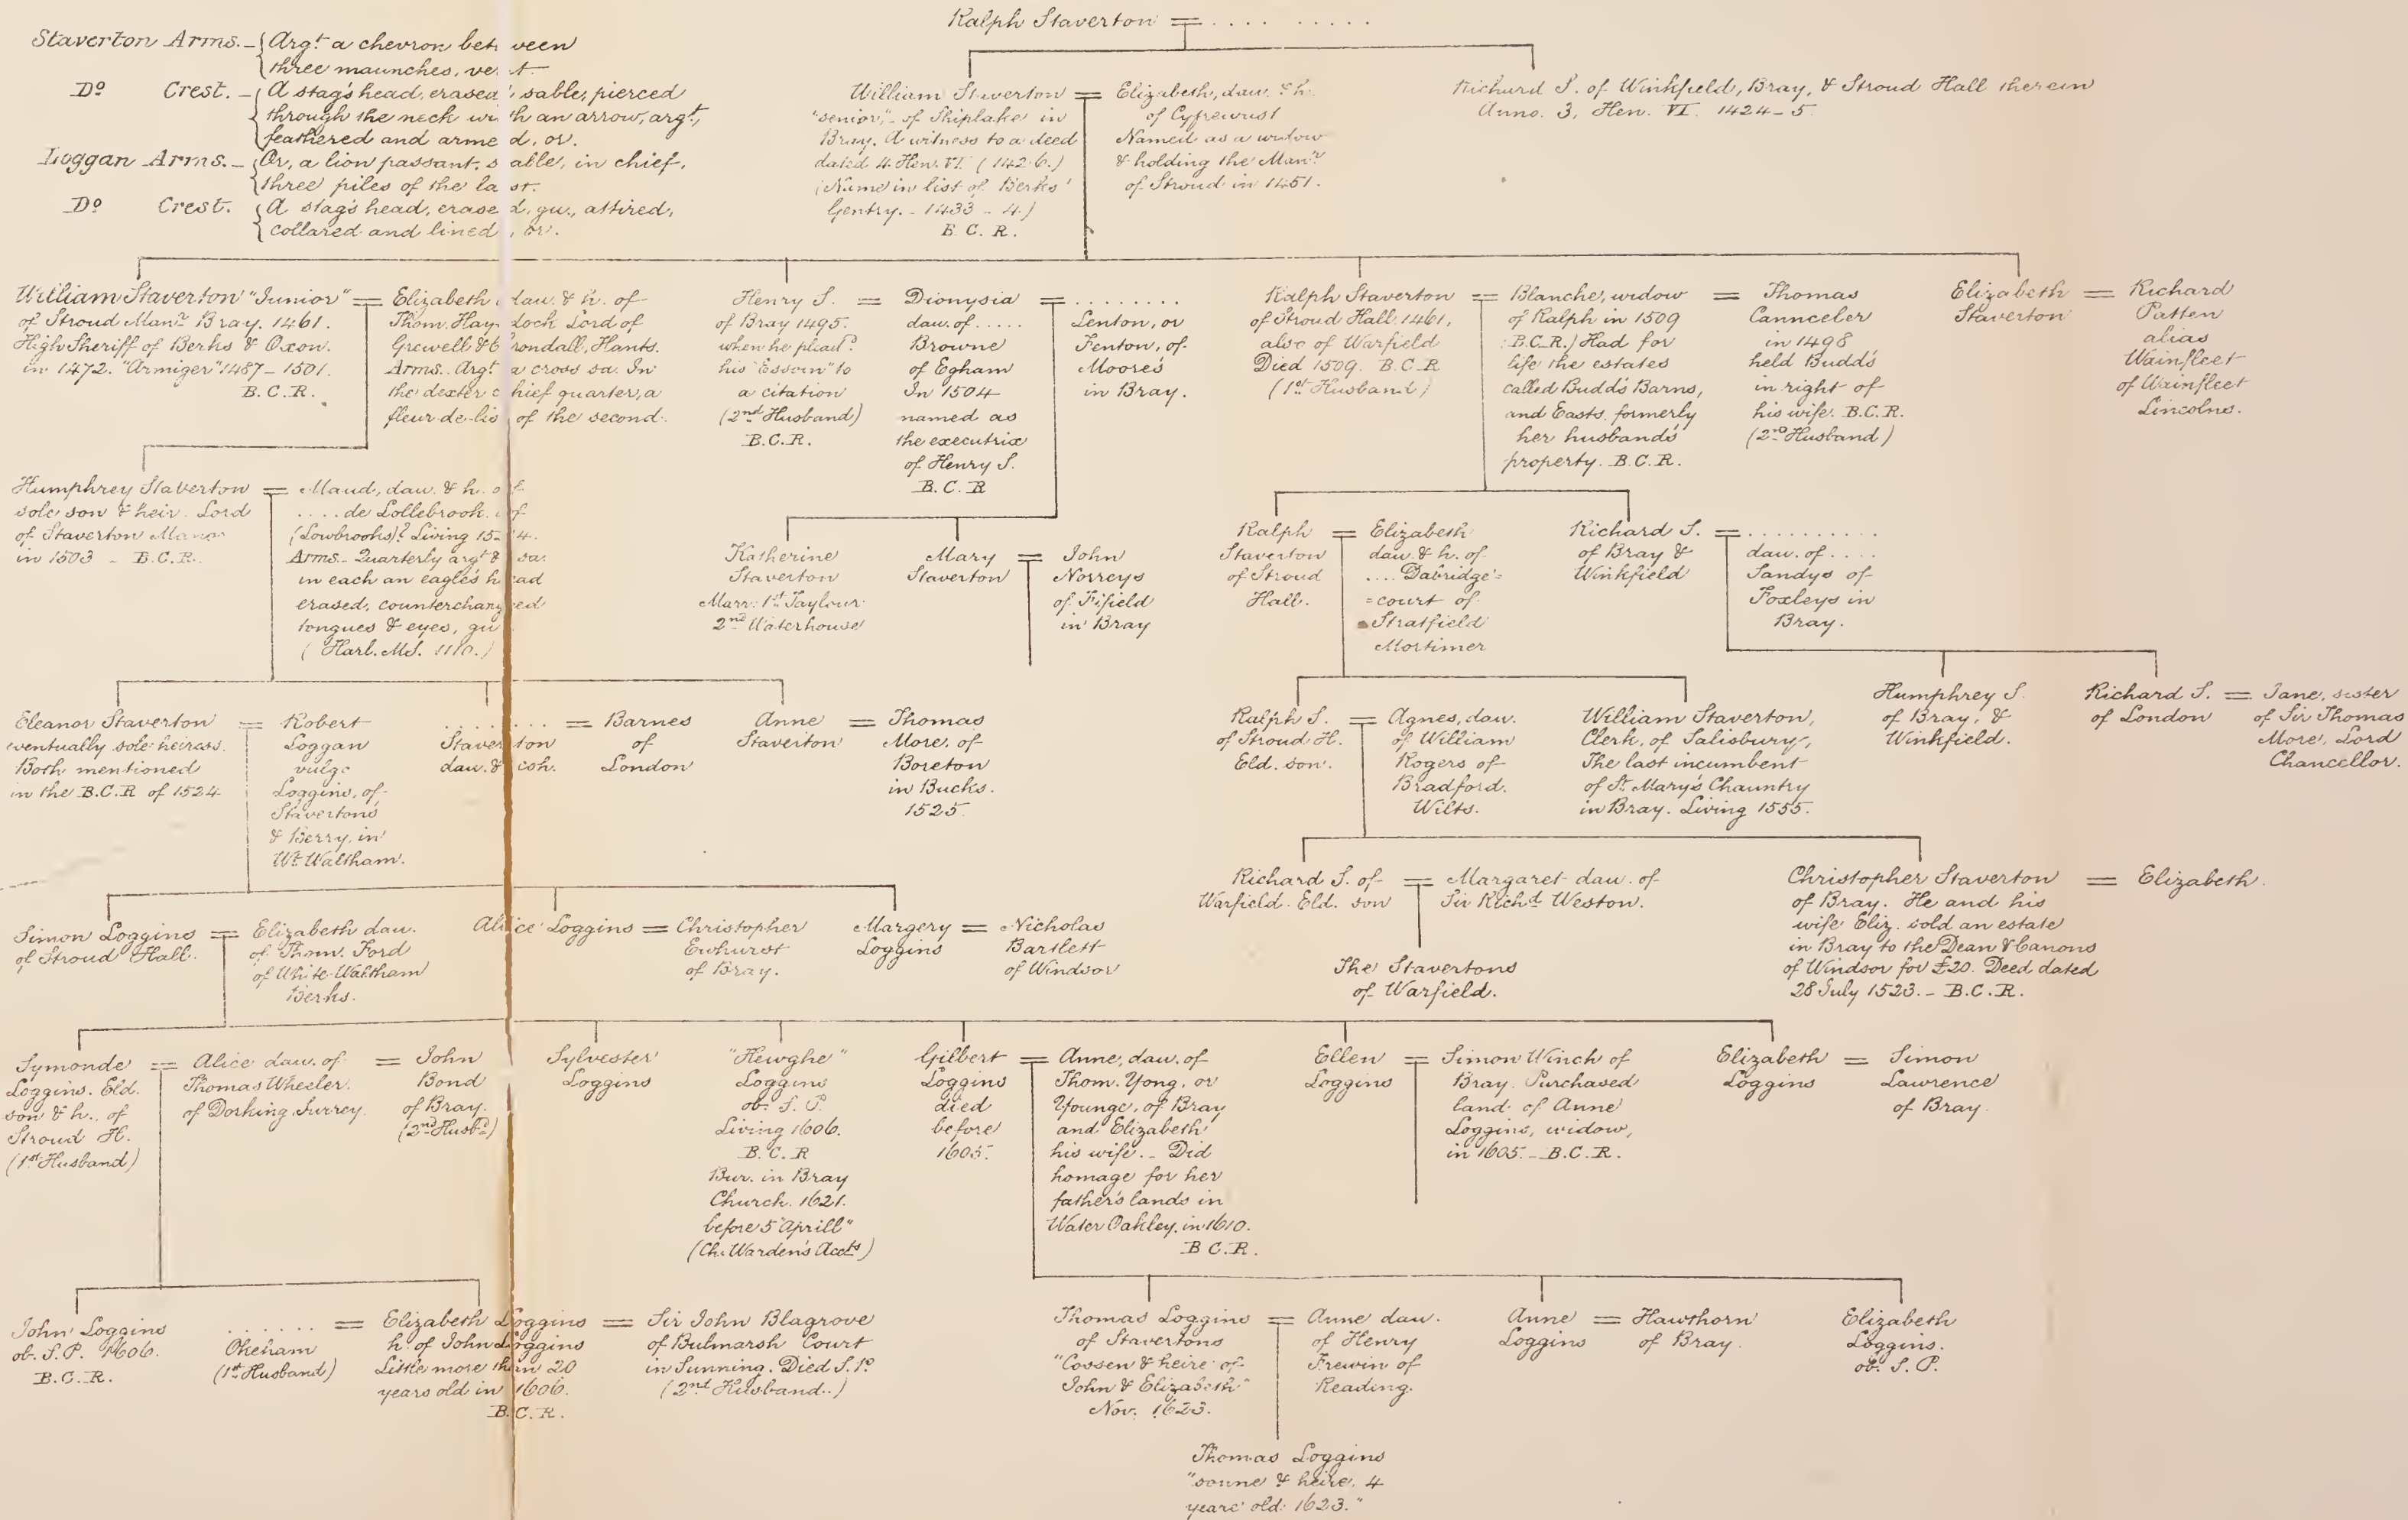 Ralph Staverton = .... .....
Staverton Arms. – Arg.t a chevron between
three maunches, vert.
Do Crest. – A stag's head, erased, sable, pierced
through the neck with an arrow, arg.t,
feathered and armed, or.
Loggan Arms. – Or, a lion passant, sable, in chief,
three piles of the last.
Do Crest. A stag's head, erased, gu., attired,
collared and lined, or.
William Staverton =
"senior", of Shiplake in
Bray. A witness to a deed
dated 4. Hen. VI. (1426.)
(Name in list of Berks'
Gentry. – 1433 – 4.)
B. C. R.
Elizabeth, dau. & h.
of Cyfrewast
Named as a widow
& holding the Man.r
of Stroud in 1451.
Richard S. of Winkfield, Bray, & Stroud Hall therein
Anno. 3, Hen. VI. 1424–5.
William Staverton "Junior" =
of Stroud Man.r Bray. 1461.
High Sheriff of Berks & Oxon.
in 1472. "Armiger" 1487–1501.
B.C.R.
Elizabeth dau. & h. of
Thom. Haydock Lord of
Grewell & Crondall, Hants.
Arms. Arg.t a cross sa. In
the dexter chief quarter, a
fleur-de-lis of the second.
Henry S. =
of Bray 1495.
when he plead.d
his "Essoin" to
a citation
(2nd Husband)
B.C.R.
Dionysia =
dau. of .....
Browne
of Egham
In 1504
named as
the executrix
of Henry S.
B.C.R
........
Lenton, or
Fenton, of
Moores
in Bray.
Ralph Staverton =
of Stroud Hall. 1461,
also of Warfield
Died 1509. B.C.R
(1st Husband)
Blanche, widow =
of Ralph in 1509
B.C.R.) Had for
life the estates
called Budd's Barns,
and Easts, formerly
her husband's
property. B.C.R.
Thomas
Cannceler
in 1498
held Budd's
in right of
his wife. B.C.R.
(2nd Husband)
Elizabeth =
Staverton
Richard
Patten
alias
Wainfleet
of Wainfleet
Lincolns.
Humphrey Staverton =
sole son & heir. Lord
of Staverton Manor
in 1503 – B.C.R.
Maud, dau. & h. of
.... de Lollebrook. of
(Lowbrooks)? Living 1524.
Arms – Quarterly arg.t & sa.
in each an eagle's head
erased, counterchanged
tongues & eyes, gu
(Harl. MS. 1110.)
Katherine
Staverton
Marr. 1st Taylour
2nd Waterhouse
Mary =
Staverton
John
Norreys
of Fifield
in Bray
Ralph =
Staverton
of Stroud
Hall.
Elizabeth
dau. & h. of
.... Dabridge=
=court of
Stratfield
Mortimer
Richard S. =
of Bray &
Winkfield
..........
dau. of ....
Sandys of
Foxleys in
Bray.
Eleanor Staverton =
eventually sole heiress.
Both mentioned
in the B.C.R of 1524
Robert
Loggan
vulgo
Loggins, of
Stavertons
& Berry, in
Wt. Waltham.
........ =
Staverton
dau. & coh.
Barnes
of
London
Anne =
Staverton
Thomas
More, of
Boreton
in Bucks.
1525.
Ralph S. =
of Stroud H.
Eld. son.
Agnes, dau.
of William
Rogers of
Bradford.
Wilts.
William Staverton,
Clerk, of Salisbury,
The last incumbent
of St. Mary's Chauntry
in Bray. Living 1555.
Humphrey S.
of Bray, &
Winkfield.
Richard S. =
of London
Jane, sister
of Sir Thomas
More, Lord
Chancellor.
Richard S. of =
Warfield. Eld. son
Margaret dau. of
Sir Rich.d Weston.
Christopher Staverton = Elizabeth.
of Bray. He and his
wife Eliz. sold an estate
in Bray to the Dean & Canons
of Windsor for £20. Deed dated
28 July 1523. – B.C.R.
The Stavertons
of Warfield.
Simon Loggins =
of Stroud Hall.
Elizabeth dau.
of Thom. Ford
of White Waltham
Berks.
Alice Loggins =
Christopher
Ewhurst
of Bray.
Margery =
Loggins
Nicholas
Bartlett
of Windsor
Symonde =
Loggins. Eld.
son & h., of
Stroud H.
(1st Husband)
Alice dau. of =
Thomas Wheeler.
of Dorking Surrey.
John
Bond
of Bray.
(2nd Husb.d)
Sylvester
Loggins
"Hewghe"
Loggins
ob. S. P.
Living 1606.
B. C. R
Bur. in Bray
Church. 1621.
before 5 "Aprill"
(Ch. Warden's Accts)
Gilbert =
Loggins
died
before
1605.
Anne, dau. of
Thom. Yong, or
Younge, of Bray
and Elizabeth
his wife. – Did
homage for her
father's lands in
Water Oakley, in 1610.
B C. R.
Ellen =
Loggins
Simon Winch of
Bray. Purchased
land of Anne
Loggins, widow,
in 1605. – B.C.R.
Elizabeth =
Loggins
Simon
Lawrence
of Bray.
John Loggins
ob. S.P. 1606.
B.C.R.
...... =
Okeham
(1st Husband)
Elizabeth Loggins =
h. of John Loggins
Little more than 20
years old in 1606.
B.C.R.
Sir John Blagrove
of Bulmarsh Court
in Sunning. Died S.P.
(2nd Husband.)
Thomas Loggins =
of Stavertons
"Cossen & heire of
John & Elizabeth"
Nov. 1623.
Anne dau.
of Henry
Frewin of
Reading.
Anne =
Loggins
Hawthorn
of Bray.
Elizabeth
Loggins.
ob. S. P.
Thomas Loggins
"sonne & heire, 4
yeare old: 1623."